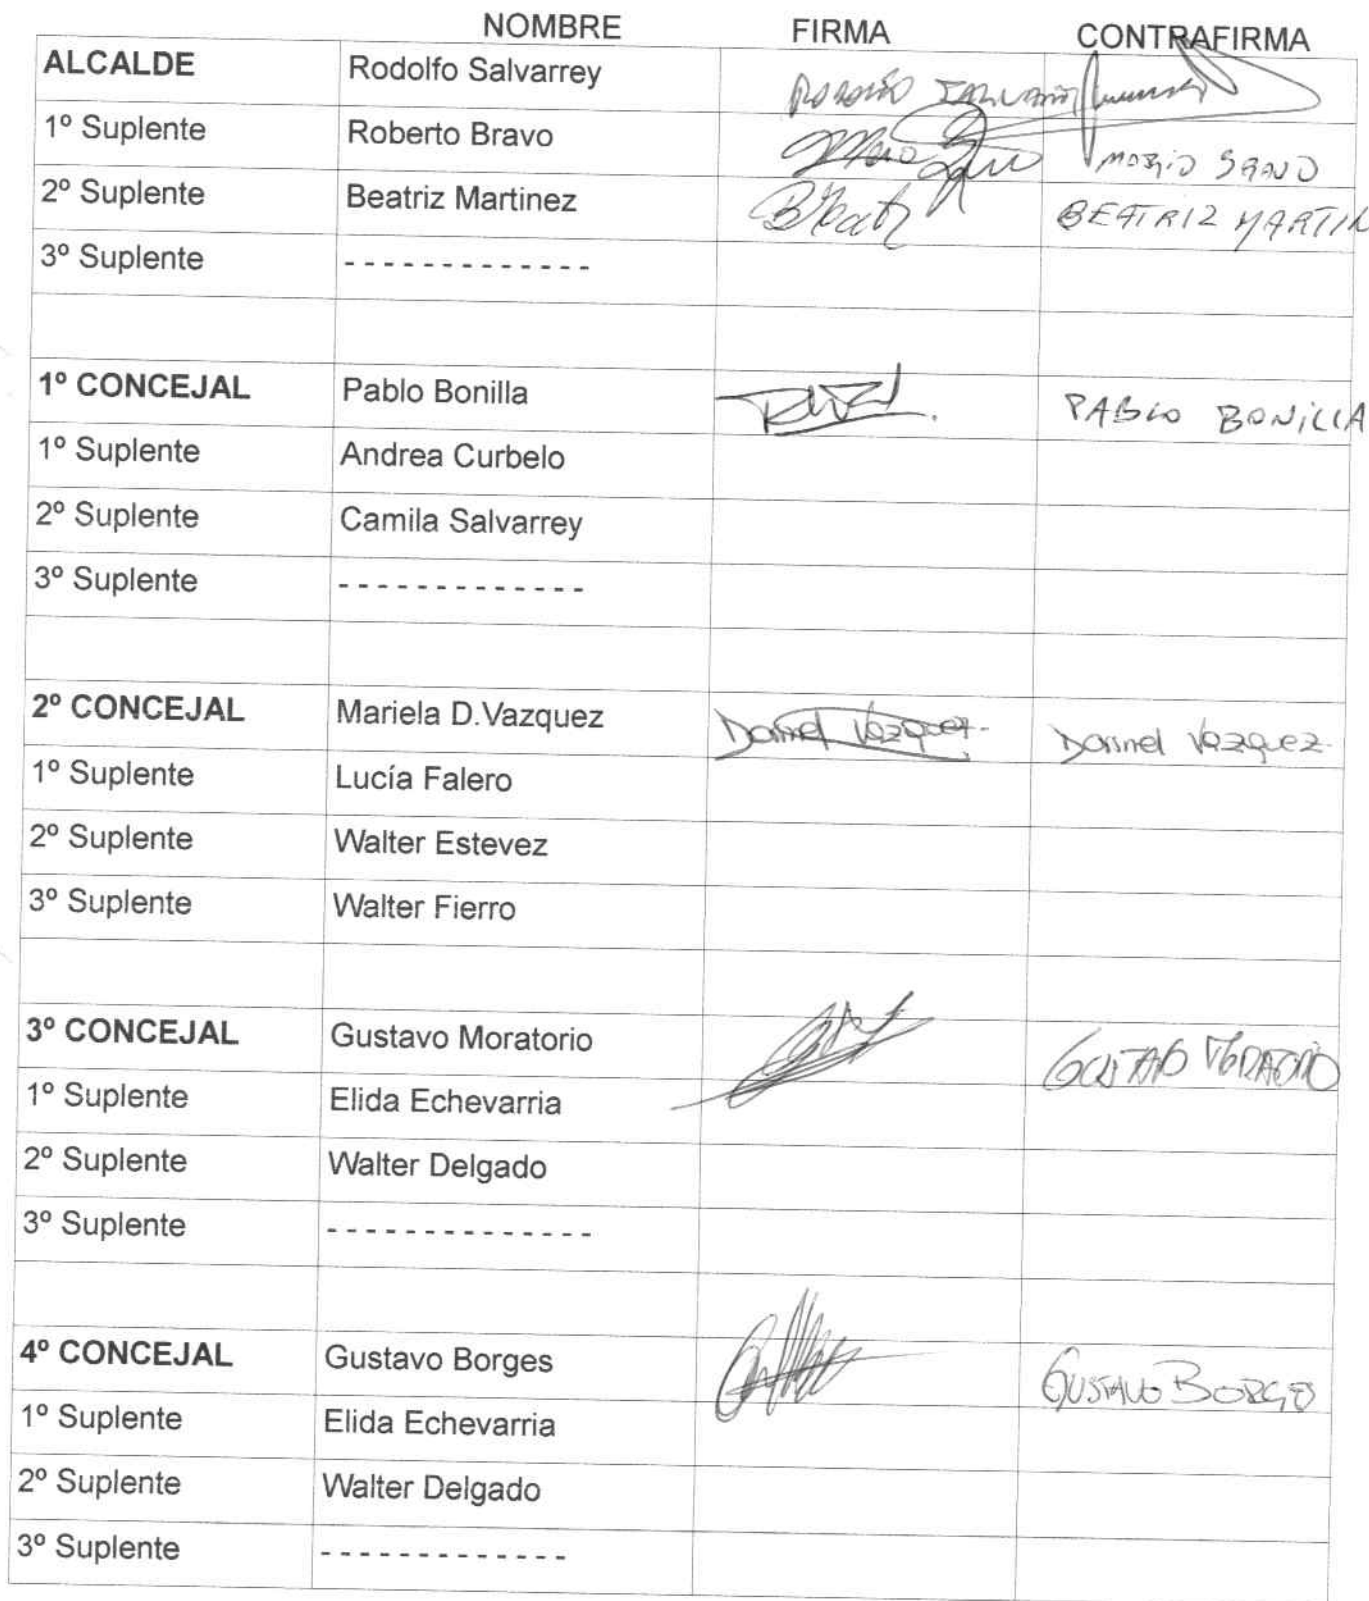 NOMBRE FIRMA CONTRAFIRMA
ALCALDE Rodolfo Salvarrey
1º Suplente Roberto Bravo
2º Suplente Beatriz Martinez BEATRIZ MARTIN
3º Suplente - - - - - - - - - - - - -
1º CONCEJAL Pablo Bonilla PABLO BONiLLA
1º Suplente Andrea Curbelo
2º Suplente Camila Salvarrey
3º Suplente - - - - - - - - - - - - -
2º CONCEJAL Mariela D.Vazquez Vazquez Vazquez
1º Suplente Lucía Falero
2º Suplente Walter Estevez
3º Suplente Walter Fierro
3º CONCEJAL Gustavo Moratorio
1º Suplente Elida Echevarria
2º Suplente Walter Delgado
3º Suplente - - - - - - - - - - - - - -
4º CONCEJAL Gustavo Borges GUSTAVO
1º Suplente Elida Echevarria
2º Suplente Walter Delgado
3º Suplente - - - - - - - - - - - - -